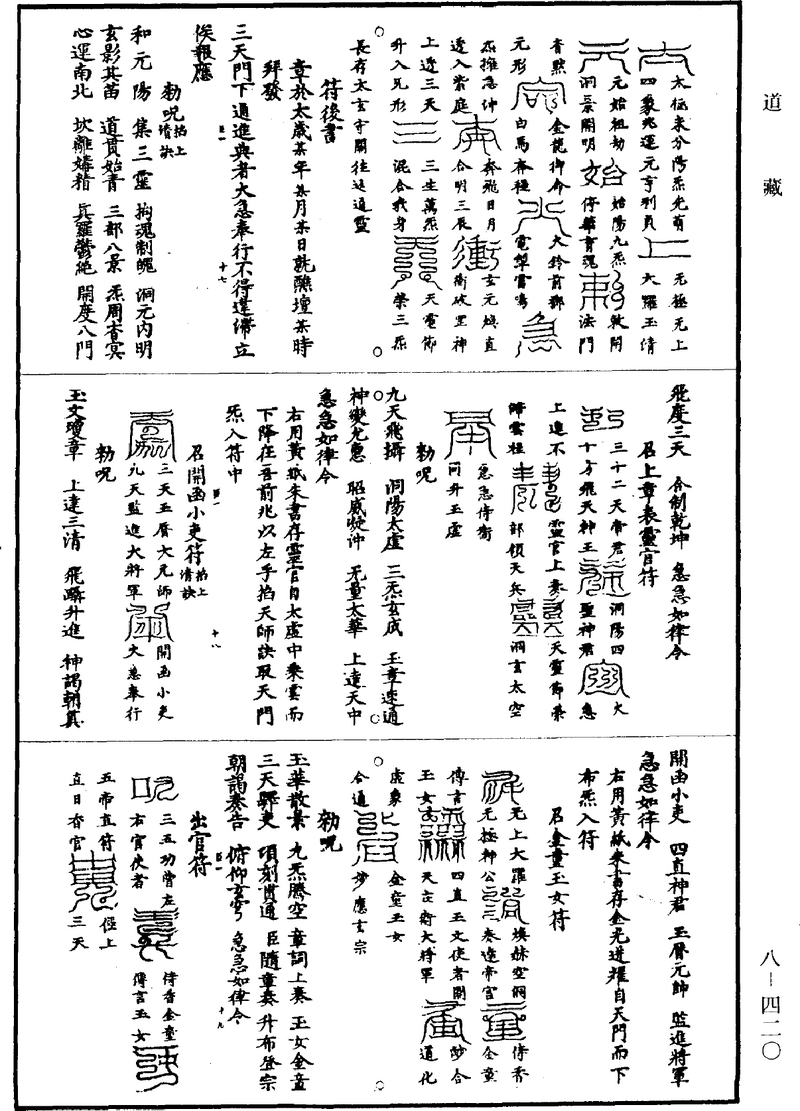 道藏
八-四二〇
太極未分陽炁光萌
四象兆運元亨利貞
无極无上
大羅玉清
元始祖劫
洞晨開明
始陽九炁
停華育魂
敕開
法門
青黙
元形
金龍御命
白馬奔祖
火鈴前鄣
電掣雷鳴
杰推急仲
透入紫庭
奔飛日月
合明三辰
玄元煥直
衝破罡神
上透三天
升入兄形
三生萬炁
混合我身
天電節
榮三炁
長存太玄守關往返通靈
符後書
章於太歲某年某月某日就醮壇某時
拜發
三天門下通進典者大急奉行不得違滯立
俟報應
十七
勑呪掐上清訣
和元陽 集三靈 拘魂制魄 洞元內明
玄影其茁 道貫始青 三部八景 炁周杳冥
心運南北 坎離媾精 真羅鬱絕 開度八門
飛度三天 合制乾坤 急急如律令
召上章表靈官符
三十二天帝君
十方飛天神王
洞陽四
聖神君
大
急
上進不
歸雲程
靈官上奏
部領天兵
天靈節榮
洞玄太空
急急停衝
同升玉虛
勑呪
九天飛攝 洞陽太虛 三炁玄成 玉章速通
神變尤應 昭威凝沖 无量太華 上達天中
急急如律令
右用黃紙朱書存靈官自太虛中乘雲而
下降在吾前兆以左手掐天師訣取天門
炁入符中
十八
召開函小吏符掐上清訣
三天玉曆大元帥
九天監進大將軍
開函小吏
大急奉行
勑呪
玉文瓊章 上達三清 飛躡升進 神謁朝真
開函小吏 四直神君 玉曆元帥 監進將軍
急急如律令
右用黃紙朱書存金光逬耀自天門而下
布炁入符
召金童玉女符
无上大羅
无極神公
煥赫空洞
奏達帝官
侍香
金童
傳言
玉女
四直玉文使者開
天正符大將軍
妙合
道化
虛象
合通
金童玉女
妙應玄宗
勑呪
玉華散景 九炁騰空 章詞上奏 玉女金童
三天驛吏 頃刻貫通 臣隨章奏 升布登宗
朝謁奏告 俯仰玄穹 急急如律令
十九
出官符
三五功曹左
右官使者
侍香金童
傳言玉女
五帝直符
直日香官
徑上
三天